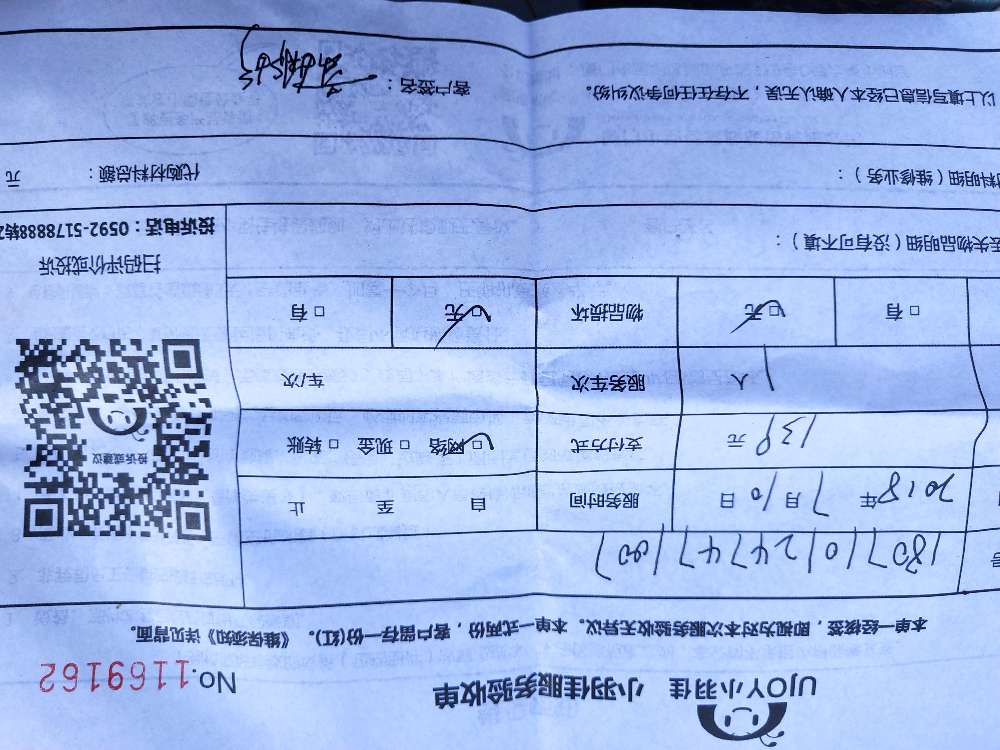 UJOY小羽佳 小羽佳服务验收单
No.1169162
本单一经核签，即视为对本次服务验收无异议。本单一式两份，客户留存一份(红)。《维保须知》详见背面。
号
2018年7月10日 服务时间 自 至 止
139元 支付方式 □网络 □现金 □转账
1人 服务车次 车/次
□有 □无 物品损坏 □无 □有
投诉或建议
扫码评价或投诉
投诉电话：0592-5178888转2
丢失物品明细（没有可不填）：
材料明细（维修业务）： 代购材料总额： 元
以上填写信息已经本人确认无误，不存在任何争议纠纷。 客户签名：